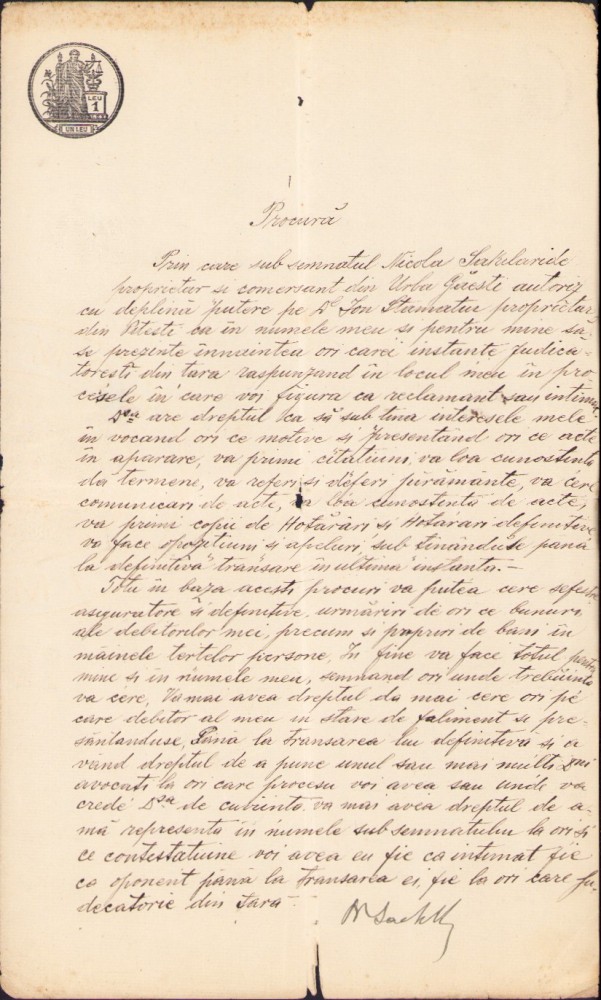 LEU
1
UN LEU
Procură
Prin care sub semnatul Nicola Sakelaride
proprietar si comersant din Urba Găesti autoriz
cu deplină putere pe Dl Ion Stamatiu proprietar
din Pitesti ca in numele meu si pentru mine să
se presinte innaintea ori carei instante Judica-
toresti din tara raspunzand in locul meu in pro
cesele in care voi figura ca reclamant sau intimat.
Dsa are dreptul ca să sub tina interesele mele
in vocand ori ce motive si presentand ori ce acte
in aparare, va primi citatiuni, va loa cunostinta
da termene, va referi si deferi jurăminte, va cere
comunicari de acte, va loa cunostintă de acte,
va primi copii de Hotărari si Hotărari definitive
va face opozitiuni si apeluri sub tinânduse pană
la definitiva transare in ultima instanta.—
Totu in baza acesti procuri va putea cere sefestre
asiguratore si definitive, urmăriri de ori ce bunuri
ale debitorilor mei, precum si popriri de bani in
măinele tertelor persone, In fine va face totul pentru
mine si in numele meu, semnand ori unde trebuinta
va cere, Va mai avea dreptul da mai cere ori pe
care debitor al meu in stare de faliment si pre-
săntanduse, Pana la transarea lui definitivă si a
vând dreptul de a pune unul sau mai multi Dnii
avocati la ori care procesu voi avea sau unde va
crede Dsa de cuviinta. va mai avea dreptul de a-
mă representa in numele sub semnatului la ori si
ce contestatiune voi avea eu fie ca intimat fie
ca oponent pana la transarea ei, fie la ori care Ju-
decatorie din tara —